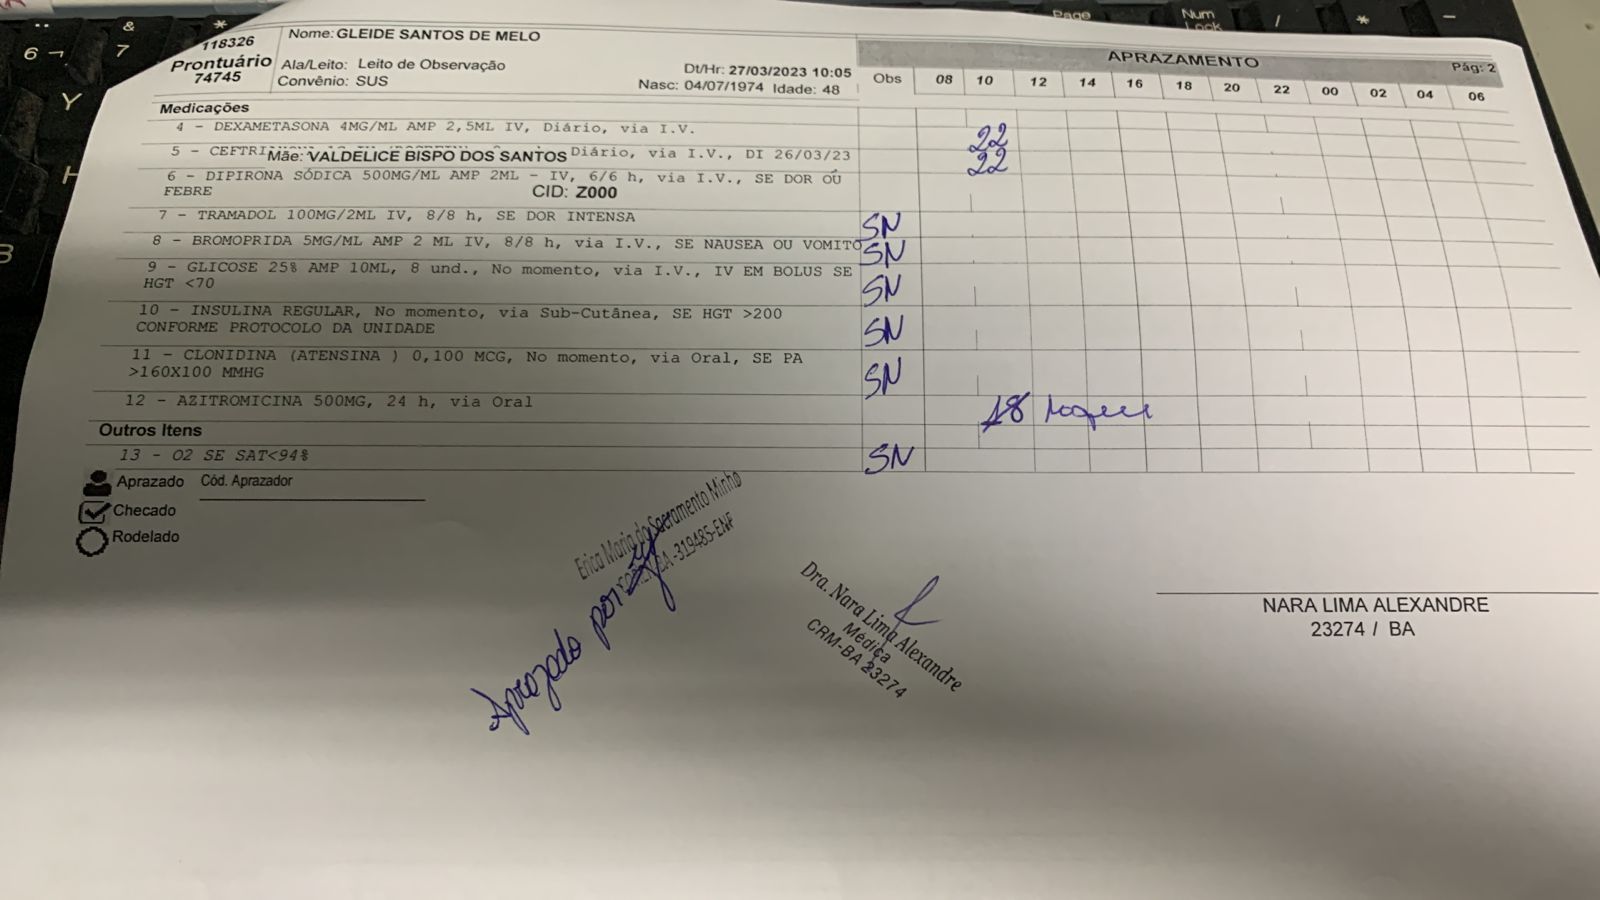 118326
Prontuário
74745
Nome: GLEIDE SANTOS DE MELO
Ala/Leito: Leito de Observação
Convênio: SUS
Dt/Hr: 27/03/2023 10:05
Nasc: 04/07/1974 Idade: 48
APRAZAMENTO
Pág: 2
Obs 08 10 12 14 16 18 20 22 00 02 04 06
Medicações
4 - DEXAMETASONA 4MG/ML AMP 2,5ML IV, Diário, via I.V. 22
5 - Diário, via I.V., DI 26/03/23 22
Mãe: VALDELICE BISPO DOS SANTOS
6 - DIPIRONA SÓDICA 500MG/ML AMP 2ML - IV, 6/6 h, via I.V., SE DOR OU
FEBRE
CID: Z000
7 - TRAMADOL 100MG/2ML IV, 8/8 h, SE DOR INTENSA SN
8 - BROMOPRIDA 5MG/ML AMP 2 ML IV, 8/8 h, via I.V., SE NAUSEA OU VOMITO SN
9 - GLICOSE 25% AMP 10ML, 8 und., No momento, via I.V., IV EM BOLUS SE
HGT <70 SN
10 - INSULINA REGULAR, No momento, via Sub-Cutânea, SE HGT >200
CONFORME PROTOCOLO DA UNIDADE SN
11 - CLONIDINA (ATENSINA ) 0,100 MCG, No momento, via Oral, SE PA
>160X100 MMHG SN
12 - AZITROMICINA 500MG, 24 h, via Oral 18
Outros Itens
13 - O2 SE SAT<94% SN
Aprazado Cód. Aprazador
Checado
Rodelado
Erica Maria do Sacramento Minho
-319485-ENF
Aprazado por:
Dra. Nara Lima Alexandre
Médica
CRM-BA 23274
NARA LIMA ALEXANDRE
23274 / BA
6 ¬
&
7
*
Y
H
B
Page
Num
Lock
/
*
-